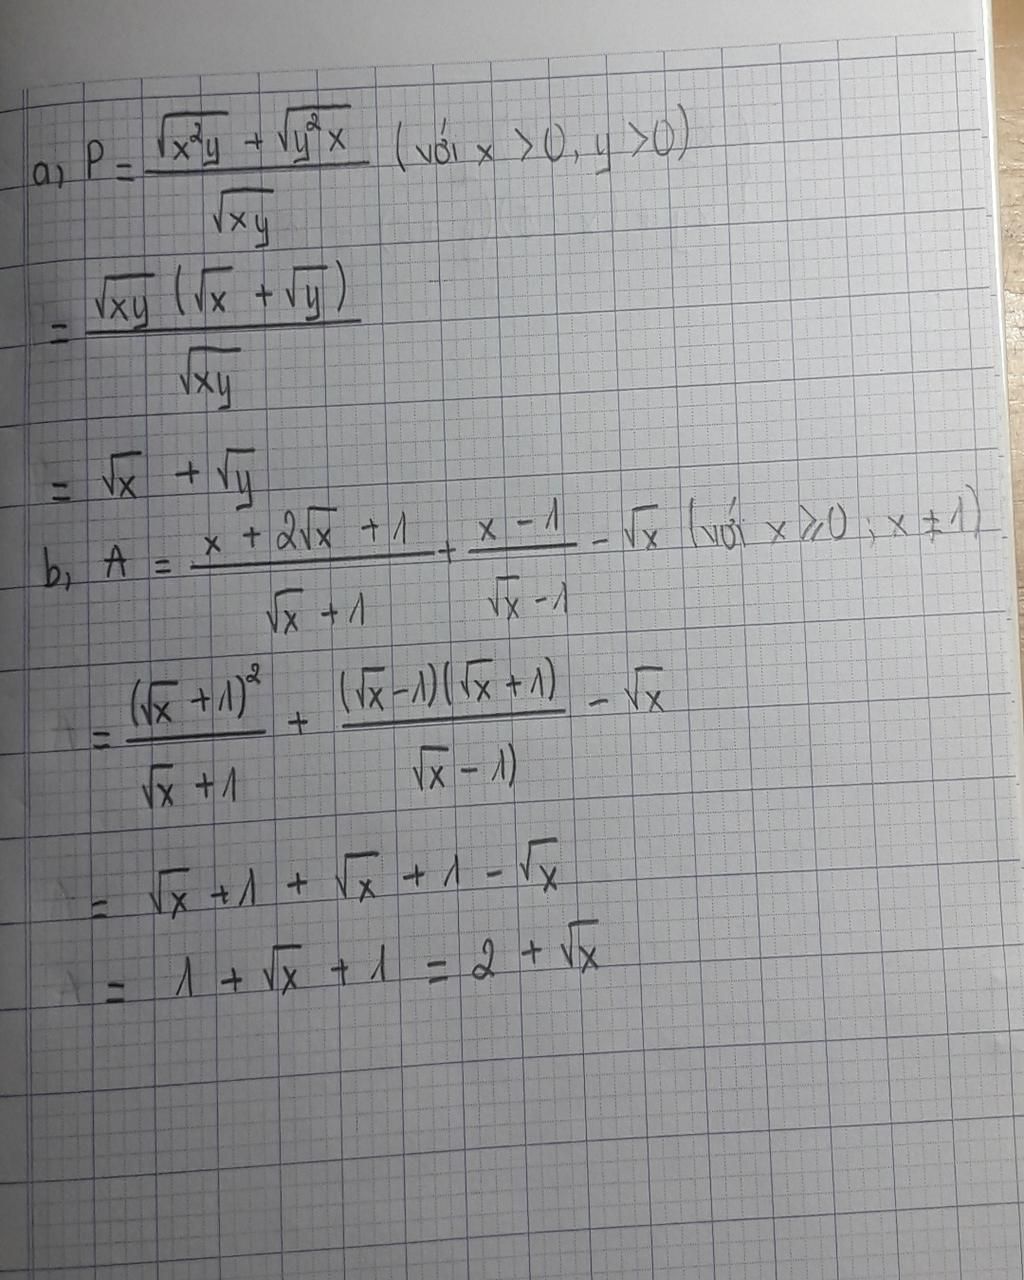 a, P = \frac{\sqrt{x^2y} + \sqrt{y^2x}}{\sqrt{xy}} (với x > 0, y > 0)
= \frac{\sqrt{xy} (\sqrt{x} + \sqrt{y})}{\sqrt{xy}}
= \sqrt{x} + \sqrt{y}
b, A = \frac{x + 2\sqrt{x} + 1}{\sqrt{x} + 1} + \frac{x - 1}{\sqrt{x} - 1} - \sqrt{x} (với x ⩾ 0 ; x ≠ 1)
= \frac{(\sqrt{x} + 1)^2}{\sqrt{x} + 1} + \frac{(\sqrt{x} - 1)(\sqrt{x} + 1)}{\sqrt{x} - 1)} - \sqrt{x}
= \sqrt{x} + 1 + \sqrt{x} + 1 - \sqrt{x}
= 1 + \sqrt{x} + 1 = 2 + \sqrt{x}